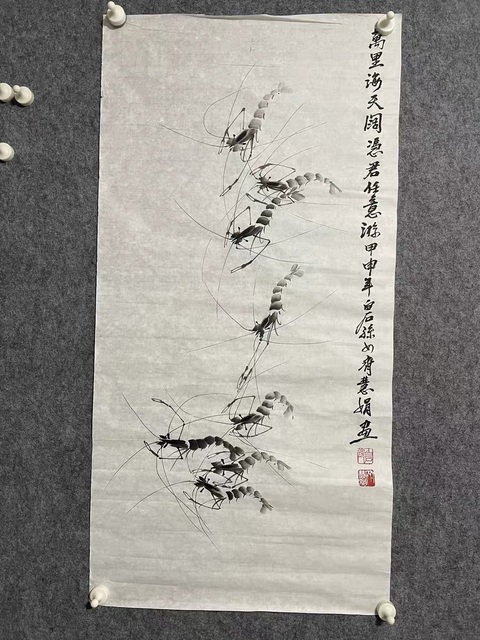 萬里海天阔憑君任意游甲申年白石孫女齊慧娟畫